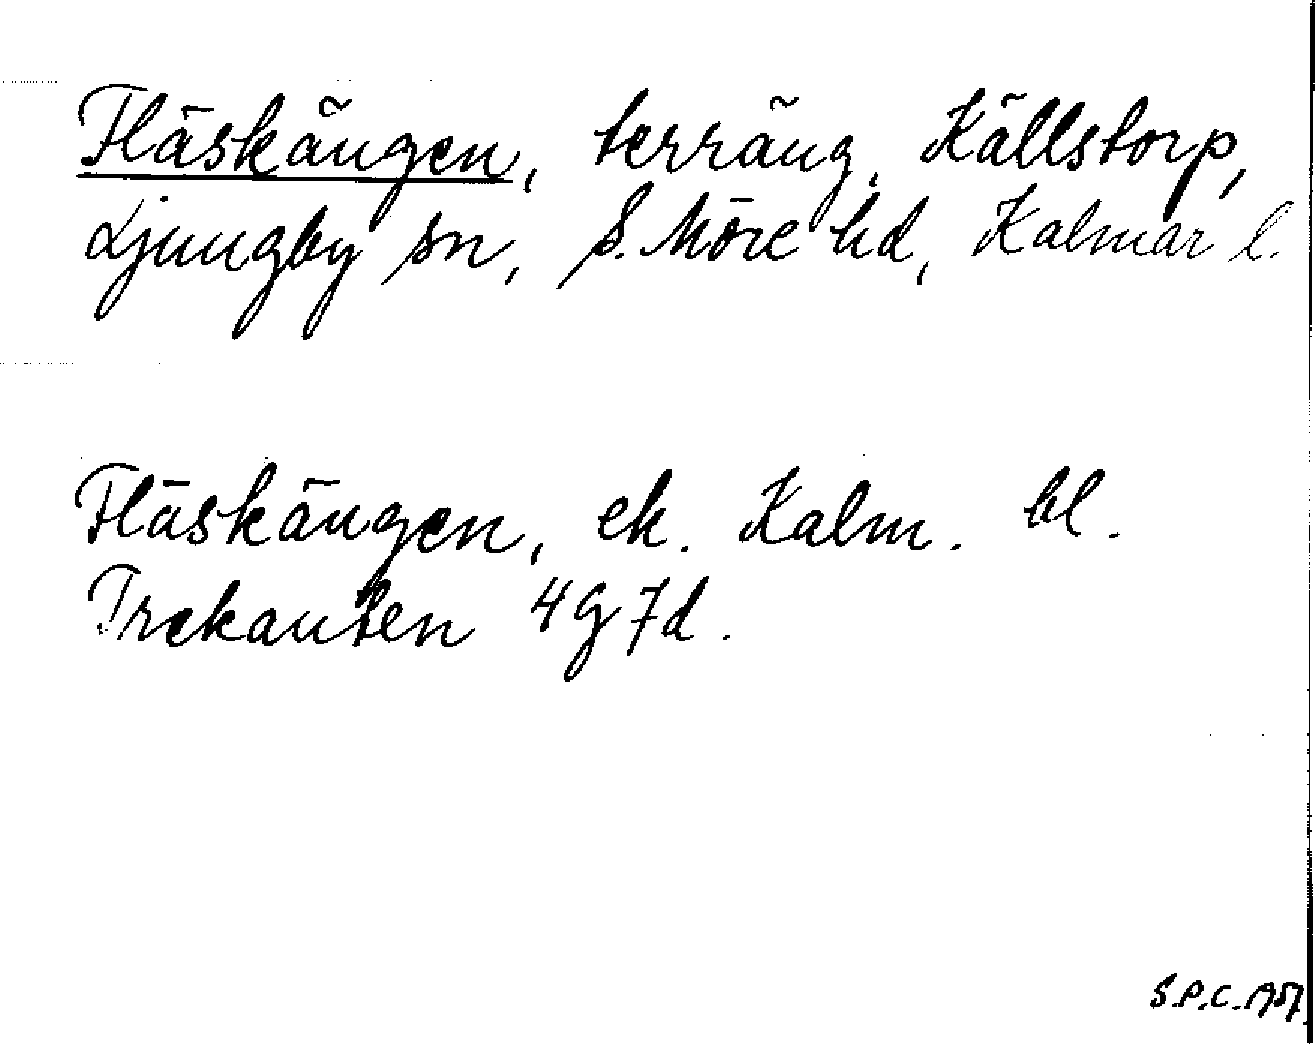 Fläskängen, terräng, Källstorp,
Ljungby sn, S. Möre hd, Kalmar l.
Fläskängen, ek. Kalm. bl.
Trekanten 4G7d.
S.P.C. 1957.